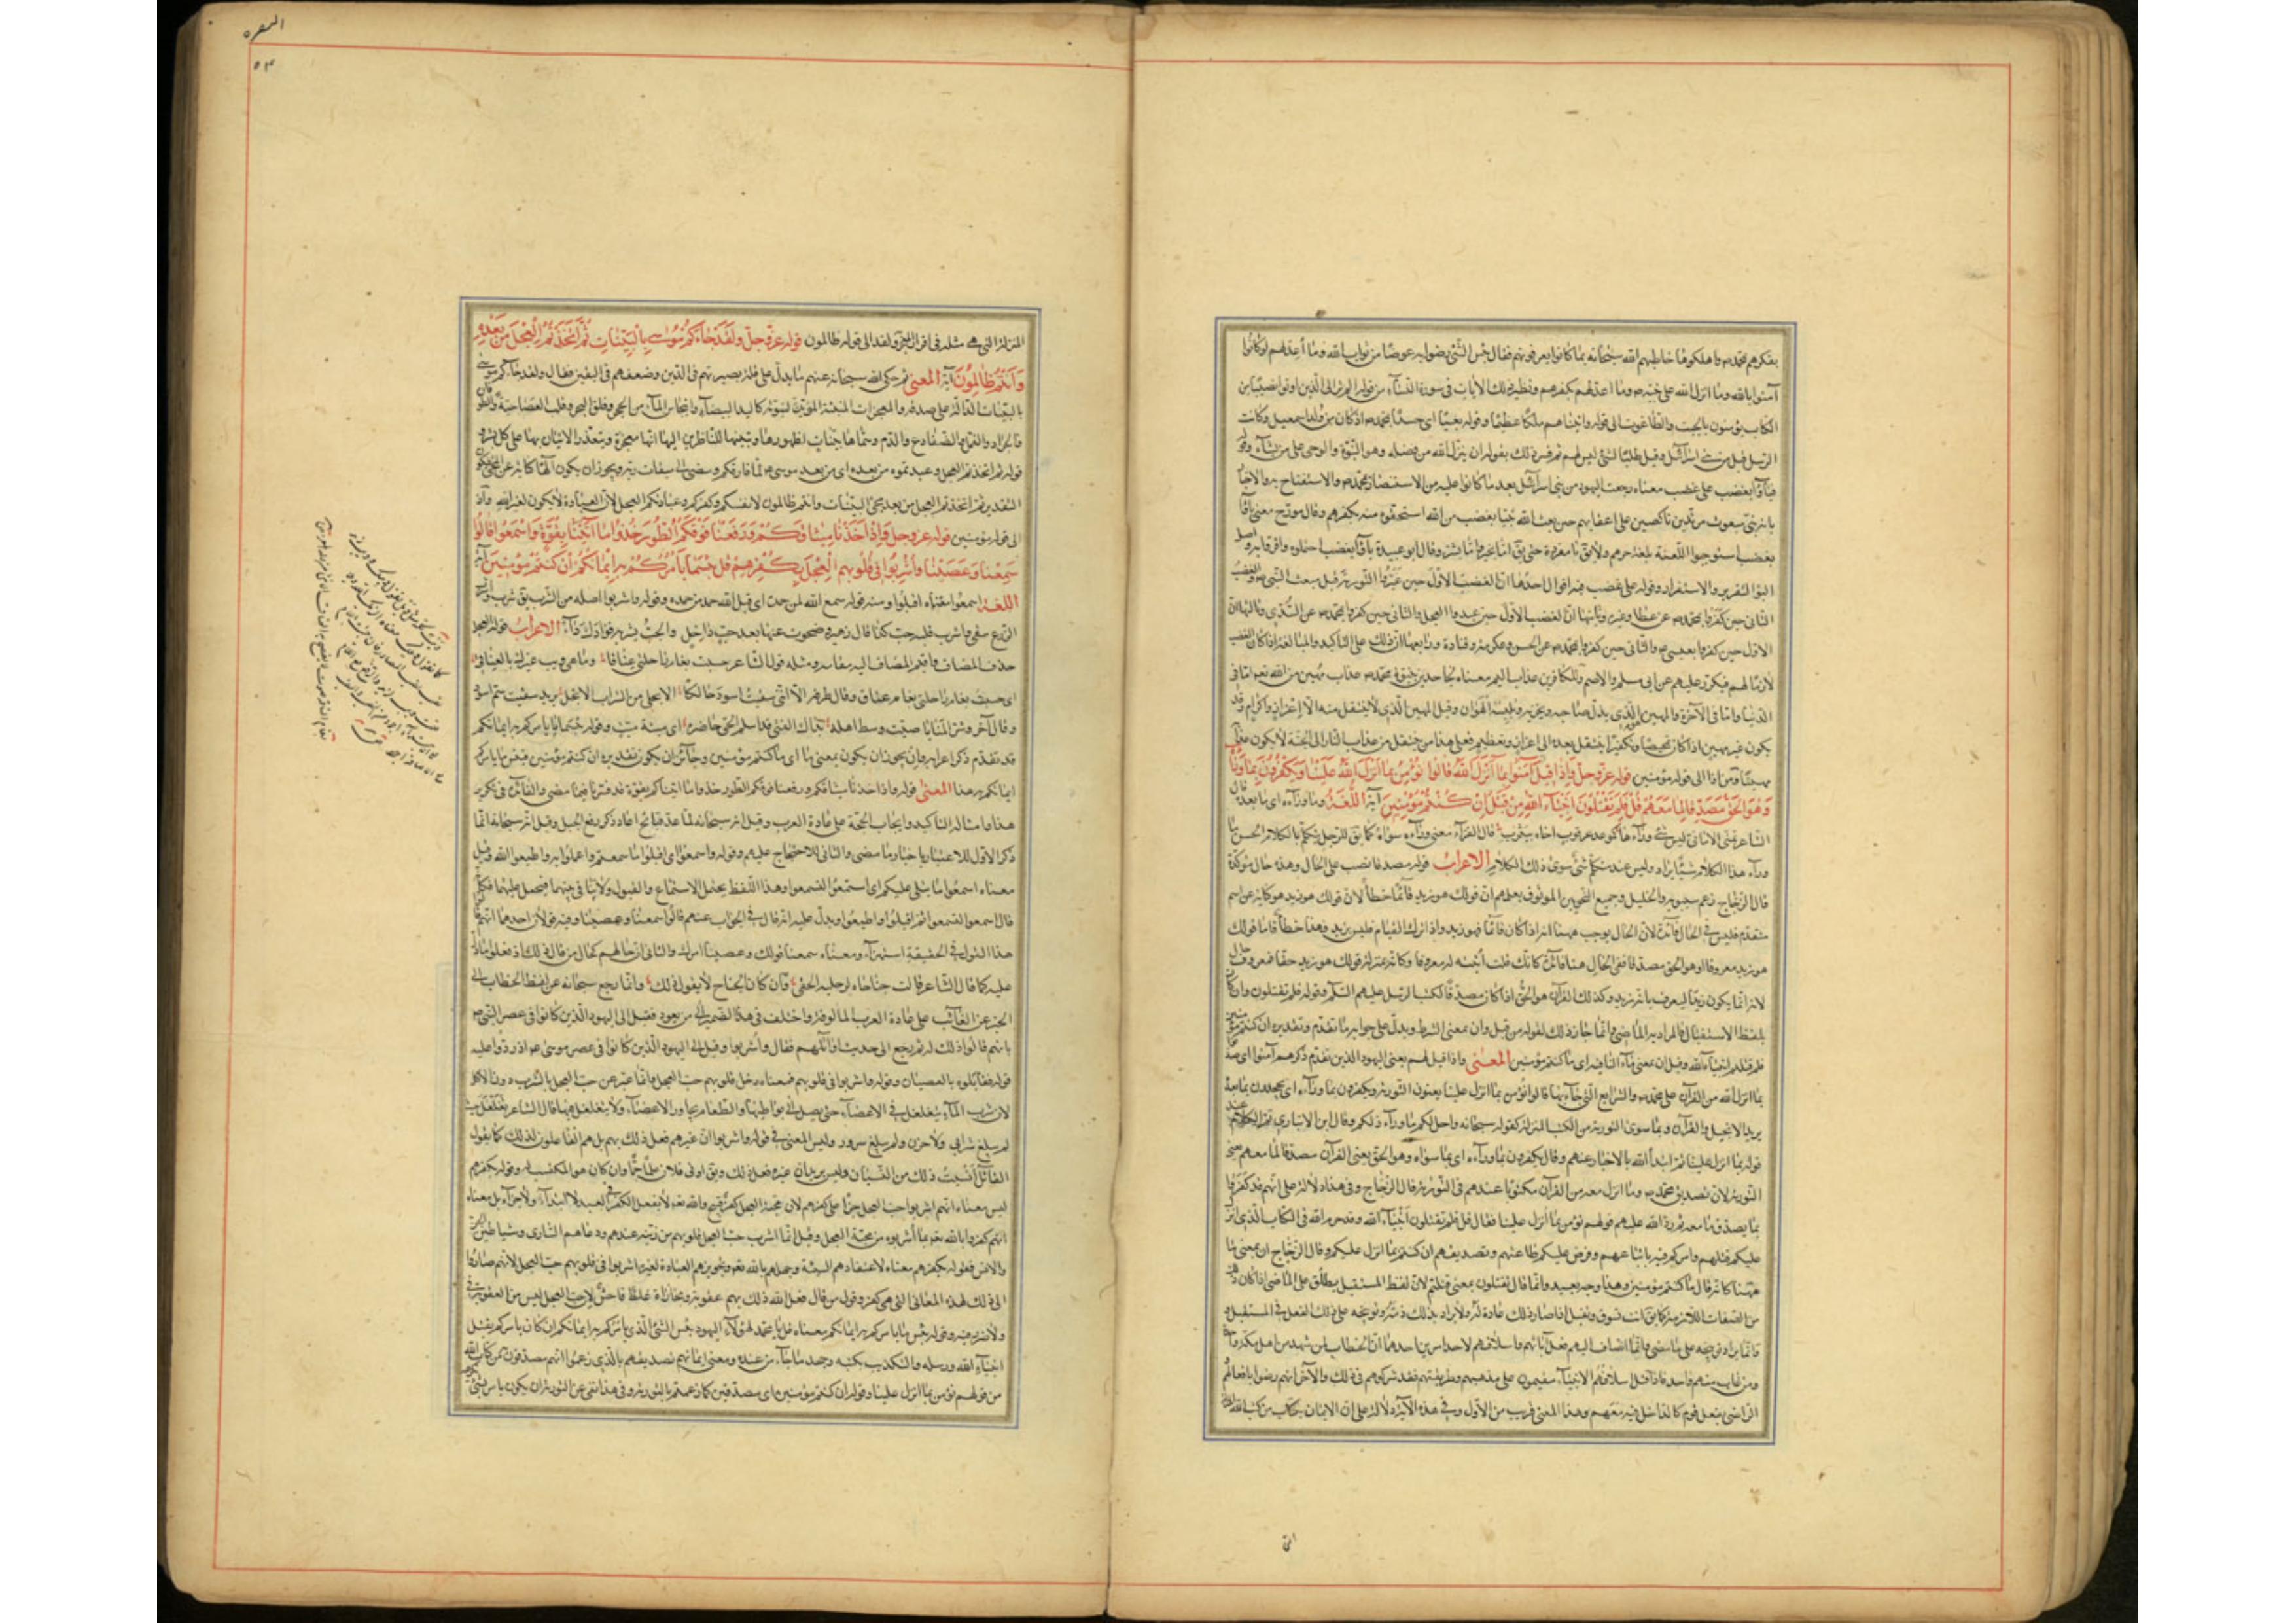 بكفرهم بمحمد ص واهلكوها خاطبهم الله سبحانه بما كانوا يعرفونهم فقال بئس الشئ رضوا به عوضا من ثواب الله وما أعد لهم لو كانوا
آمنوا بالله وما انزل الله على نبيه ص وما اعد لهم بكفرهم ونظير ذلك الآيات فى سورة النساء من قوله الم تر الى الذين اوتوا نصيبا من
الكتاب يؤمنون بالجبت والطاغوت الى قوله واتيناهم ملكا عظيما وقوله بغيا اى حسدا لمحمد ص اذ كان من ولد اسمعيل وكانت
الرسل قبل من بنى اسرائيل وقيل طلبا لشئ ليس لهم ثم فسر ذلك بقوله ان ينزل الله من فضله وهو النبوة والوحى على من يشاء
فباؤا بغضب على غضب معناه رجعت اليهود من بنى اسرائيل بعد ما كانوا عليه من الاستنصار بمحمد ص والاستفتاح به والاخبار
بانه نبى مبعوث مرتدين ناكصين على اعقابهم حين بعثه الله نبيا بغضب من الله استحقوه منه بكفرهم وقال مورج معنى باؤا
بغضب استوجبوا اللعنة بلغة جرهم ولا يقال باء مفردة حتى يق اما بخير واما بشر وقال ابو عبيدة باؤا بغضب احتملوه واقروا به واصل
البوا التقرير والاستقرار وقوله على غضب فيه اقوال احدها ان الغضب الاول حين غيروا التورية قبل مبعث النبى ص والغضب
الثانى حين كفروا بمحمد ص عن عطا وغيره وثانيها ان الغضب الاول حين عبدوا العجل والثانى حين كفروا بمحمد ص عن السدى وثالثها ان
الاول حين كفروا بعيسى ع والثانى حين كفروا بمحمد ص عن الحسن وعكرمة وقتادة ورابعها ان ذلك على التأكيد والمبالغة اذ كان الغضب
لازما لهم فيتكرر عليهم عن ابى مسلم والاصم وللكافرين عذاب اليم معناه للجاحدين بنبوة محمد ص عذاب مهين من الله تعم اما فى
الدنيا واما فى الآخرة والمهين الذى يذل صاحبه ويخزيه ويلبسه الهوان وقيل المهين الذى لا ينتقل منه الا اعزاز واكرام وقد
يكون غير مهين اذا كان تمحيصا وتكفيرا ينتقل بعده الى اعزاز وتعظيم فعلى هذا من ينتقل من عذاب النار الى الجنة لا يكون عذابه
مهينا ومن اذا الى قوله مؤمنين قوله عز وجل وَإِذَا قِيلَ آمِنُوا بِمَا أَنْزَلَ اللهُ قَالُوا نُؤْمِنُ بِمَا أُنْزِلَ عَلَيْنَا وَيَكْفُرُونَ بِمَا وَرَاءَهُ
وَهُوَ الحَقُّ مُصَدِّقًا لِمَا مَعَهُمْ قُلْ فَلِمَ تَقْتُلُونَ أَنْبِيَاءَ اللهِ مِنْ قَبْلُ إِنْ كُنْتُمْ مُؤْمِنِينَ آية اللغة وما وراءه اى ما بعده قال
الشاعر تمنى الامانى ليس شئ وراءها كموعد عرقوب اخاه بيثرب قال الفراء معنى وراءه سواه كما يق للرجل يتكلم بالكلام الحسن ما
وراء هذا الكلام شئ يراد وليس عند متكلم شئ سوى ذلك الكلام الاعراب قوله مصدقا نصب على الحال وهذه حال مؤكدة
قال الزجاج زعم سيبويه والخليل وجميع النحويين الموثوق بعلمهم ان قولك هو زيد قائما خطأ لان قولك هو زيد هو كناية عن اسم
متقدم فليس فى الحال فائدة لان الحال يوجب ههنا انه اذا كان قائما فهو زيد واذا ترك القيام فليس بزيد فهذا خطأ فاما قولك
هو زيد معروفا وهو الحق مصدقا ففى الحال هنا فائدة كانك قلت أثبته له معروفا وكانه بمنزلة قولك هو زيد حقا فمعروف حال
لانه انما يكون زيدا ليعرف بانه زيد وكذلك القرآن هو الحق اذا كان مصدقا لكتب الرسل عليهم السلم وقوله فلم تقتلون وان كان
بلفظ الاستقبال فالمراد به الماضى وانما جاز ذلك لقوله من قبل وان بمعنى الشرط ويدل على جوابه ما تقدم وتقديره ان كنتم مؤمنين
فلم قتلتم انبياء الله وقيل ان بمعنى ماء النافية اى ما كنتم مؤمنين المعنى واذا قيل لهم يعنى اليهود الذين تقدم ذكرهم آمنوا اى صدقوا
بما انزل الله من القرآن على محمد ص والشرايع التى جاء بها قالوا نؤمن بما انزل علينا يعنون التورية ويكفرون بما وراءه اى يجحدون بما بعده
يريد الانجيل والقرآن وبما سوى التورية من الكتب المنزلة كقوله سبحانه واحل لكم ما وراء ذلكم وقال ابن الانبارى تم الكلام عند
قوله بما انزل علينا ثم ابتدأ الله بالاخبار عنهم وقال ويكفرون بما وراءه اى بما سواه وهو الحق يعنى القرآن مصدقا لما معهم يعنى
التورية لان تصديق محمد ص وما انزل معه من القرآن مكتوبا عندهم فى التورية قال الزجاج وفى هذا دلالة على انهم قد كفروا
بما يصدق ما معهم ثم رد الله عليهم قولهم نؤمن بما أنزل علينا فقال قل فلم تقتلون أنبياء الله وقد حرم الله فى الكتاب الذى انزل
عليكم قتلهم وامركم فيه باتباعهم وفرض عليكم طاعتهم وتصديقهم ان كنتم بما انزل عليكم وقال الزجاج ان بمعنى ما
ههنا كانه قال ما كنتم مؤمنين وهذا وجه بعيد وانما قال تقتلون بمعنى قتلتم لان لفظ المستقبل يطلق على الماضى اذا كان ذلك
من الصفات اللازمة كما يق انت تسوق وتقتل اذا صار ذلك عادة له ولا يراد بذلك ذمه وتوبيخه على ذلك الفعل فى المستقبل و
وانما يراد توبيخه على ما مضى وانما اضاف اليهم فعل آبائهم واسلافهم لاحد امرين احدهما ان الخطاب لمن شهد من اهل ملة واحدة
ومن غاب منهم واحد فاذا قتل اسلافهم الانبياء وهم مقيمون على مذهبهم وطريقتهم فقد شركوهم فى ذلك والآخر انهم رضوا بافعالهم
الراضى بفعل قوم كالداخل فيه معهم وهذا المعنى قريب من الاول وفى هذه الآية دلالة على ان الايمان بكتاب من كتب الله
البقره
المنزلة التى هى مثله فى اقرار الجزو ولقد الى قوله ظالمون قوله عز وجل وَلَقَدْ جَاءَكُمْ مُوسىٰ بِالْبَيِّنَاتِ ثُمَّ اتَّخَذْتُمُ الْعِجْلَ مِنْ بَعْدِهِ
وَأَنْتُمْ ظَالِمُونَ آية المعنى ثم حكى الله سبحانه عنهم ما يدل على قلة بصيرتهم فى الدين وضعفهم فى اليقين فقال ولقد جاءكم موسى
بالبينات الدالة على صدقه والمعجزات المثبتة المؤيدة لنبوته كاليد البيضاء وانبجاس الماء من الحجر وفلق البحر وقلب العصا حية والطوفان
والجراد والقمل والضفادع والدم وسماها بينات لظهورها وتبينها للناظرين اليها انها معجزة ويتعذر الاتيان بها على كل بشر و
قوله ثم اتخذتم العجل وعبدتموه من بعده اى من بعد موسى ع لما فارقكم ومضى الى ميقات ربه ويجوز ان يكون الهاء كناية عن المجئ فيكون
التقدير ثم اتخذتم العجل من بعد مجئ البينات وانتم ظالمون لانفسكم وكفركم وعبادتكم العجل لان العبادة لا يكون لغير الله واذ
الى قوله مؤمنين قوله عز وجل وَإِذْ أَخَذْنَا مِيثَاقَكُمْ وَرَفَعْنَا فَوْقَكُمُ الطُّورَ خُذُوا مَا آتَيْنَاكُمْ بِقُوَّةٍ وَاسْمَعُوا قَالُوا
سَمِعْنَا وَعَصَيْنَا وَأُشْرِبُوا فِي قُلُوبِهِمُ الْعِجْلَ بِكُفْرِهِمْ قُلْ بِئْسَمَا يَأْمُرُكُمْ بِهِ إِيمَانُكُمْ إِنْ كُنْتُمْ مُؤْمِنِينَ آية
اللغة اسمعوا معناه اقبلوا ومنه قوله سمع الله لمن حمده اى قبل الله حمد من حمده وقوله واشربوا اصله من الشرب يق شرب
الزرع سقى واشرب قلبه حب كذا قال زهير فصحوت عنها بعد حب داخل والحب يشربه فؤادك داء الاعراب قوله العجل
حذف المضاف واقيم المضاف اليه مقامه ومثله قول الشاعر حسبت بغام راحلتى عناقا وما هى ويب غيرك بالعناق
اى حسبت بغام راحلتى بغام عناق وقال طرفة الا اننى سقيت اسود حالكا الا بجلى من الشراب الا بجل يريد سقيت سم اسود
وقال آخر وشر المنايا ميت وسط اهله كهلك الفتى قد اسلم الحى حاضره اى ميتة ميت وقوله بئسما يأمركم به ايمانكم
قد تقدم ذكر اعرابه وان يجوز ان يكون بمعنى ما اى ما كنتم مؤمنين وجائز ان يكون تقديره ان كنتم مؤمنين فبئس ما يامركم
ايمانكم به هذا المعنى قوله واذ اخذنا ميثاقكم ورفعنا فوقكم الطور خذوا ما اتيناكم بقوة قد فسرناه فيما مضى والفائدة فى تكرير
هذا وامثاله التاكيد وايجاب الحجة على عادة العرب وقيل انه سبحانه لما عد فضائح اعاد ذكر رفع الجبل وقيل انه سبحانه انما
ذكر الاول للاعتبار باخبار ما مضى والثانى للاحتجاج عليهم وقوله واسمعوا اى اقبلوا ما سمعتم واعملوا به واطيعوا الله وقيل
معناه اسمعوا ما يتلى عليكم اى استمعوا لتسمعوا وهذا اللفظ يحتمل الاستماع والقبول ولا تنافى بينهما فيحمل عليهما فكانه
قال اسمعوا لتسمعوا ثم اقبلوا واطيعوا ويدل عليه انه قال فى الجواب عنهم قالوا سمعنا وعصينا وفيه قولان احدهما انهم قالوا
هذا القول فى الحقيقة استهزاء ومعناه سمعنا قولك وعصينا امرك والثانى ان حالهم كحال من قال ذلك اذ فعلوا ما دل
عليه كما قال الشاعر قالت جناحاه لرجليه الحقى وان كان الجناح لا يقول ذلك وانما رجع سبحانه عن لفظ الخطاب الى
الخبر عن الغائب على عادة العرب المالوفة واختلف فى هذا الضمير الى من يعود فقيل الى اليهود الذين كانوا فى عصر النبى ص
بانهم قالوا ذلك ثم رجع الى حديث اوائلهم فقال واشربوا وقيل الى اليهود الذين كانوا فى عصر موسى ع اذ ردوا عليه
قوله فقابلوه بالعصيان وقوله واشربوا فى قلوبهم فمعناه دخل قلوبهم حب العجل وانما عبر عن حب العجل بالشرب دون الاكل
لان شرب الماء يتغلغل فى الاعضاء حتى يصل الى بواطنها والطعام يجاور الاعضاء ولا يتغلغل فيها قال الشاعر تغلغل حيث
لم يبلغ شراب ولا حزن ولم يبلغ سرور وليس المعنى فى قوله واشربوا ان غيرهم فعل ذلك بهم بل هم الفاعلون لذلك كما يقول
القائل أنسيت ذلك من النسيان وليس يريد ان غيره فعل ذلك ويق اوتى فلان علما جما وان كان هو المكتسب له وقوله بكفرهم
ليس معناه انهم اشربوا حب العجل جزاء على كفرهم لان محبة العجل كفر قبيح والله تعم لا يفعل الكفر فى العبد لا ابتداء ولا جزاء بل معناه
انهم كفروا بالله تعم بما أشربوه من محبة العجل وقيل انما اشرب حب العجل قلوبهم من زينه عندهم ودعاهم اليه كالسامرى وشياطين الجن
والانس فقوله بكفرهم معناه لاعتقادهم التشبيه وجهلهم بالله تعم وتجويزهم العبادة لغيره اشربوا فى قلوبهم حب العجل لانهم صاروا
الى ذلك لهذه المعانى التى هى كفر وقول من قال فعل الله ذلك بهم عقوبة ومجازاة غلط فاحش لان حب العجل ليس من العقوبة فى
ولا ضرر فيه وقوله بئس ما يامركم به ايمانكم معناه قل يا محمد لهؤلاء اليهود بئس الشئ الذى يأمركم به ايمانكم ان كان يامركم بقتل
انبياء الله ورسله والتكذيب بكتبه وجحد ما جاء من عنده ومعنى ايمانهم تصديقهم بالذى زعموا انهم مصدقون من كتاب الله
من قولهم نؤمن بما انزل علينا وقوله ان كنتم مؤمنين اى مصدقين كما زعمتم بالتورية وفى هذا نفى عن التورية ان يكون يامر بشئ